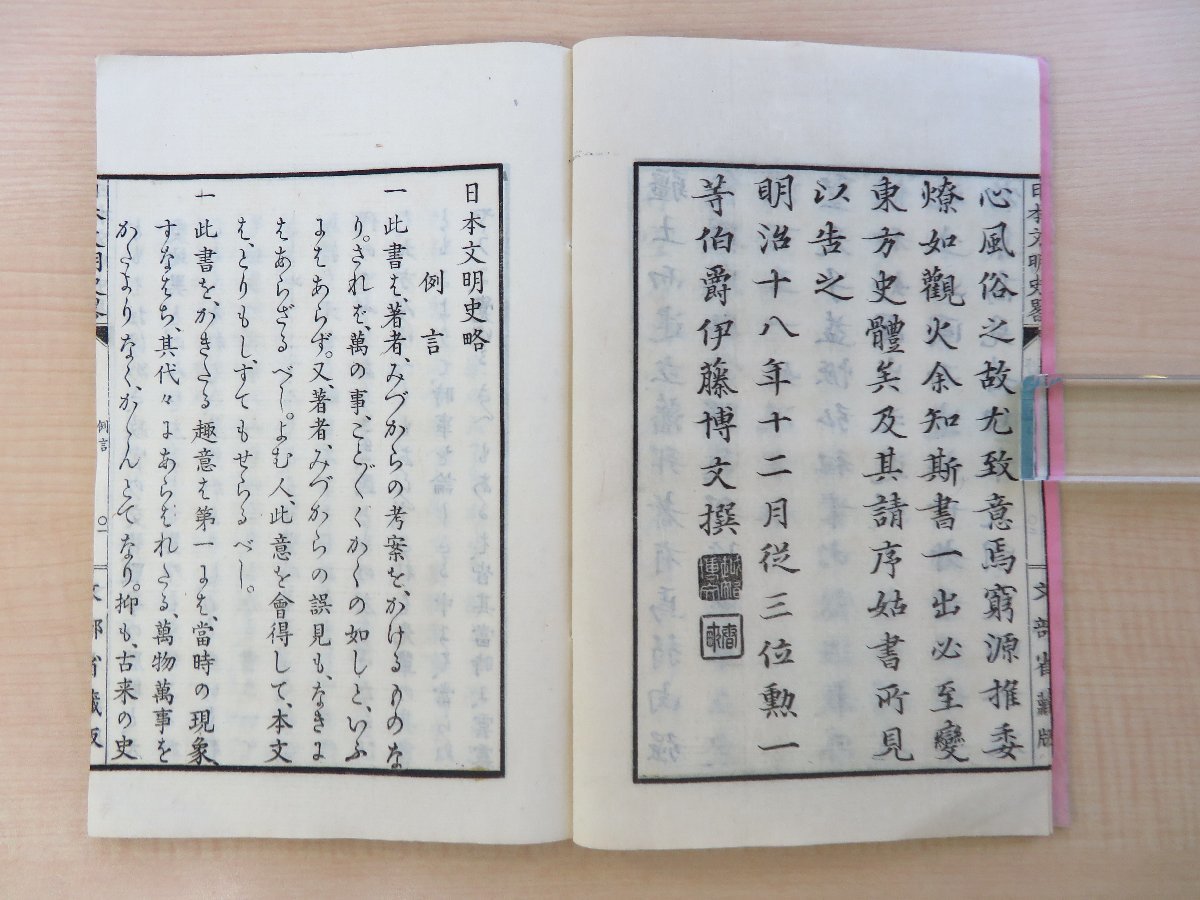 日本文明史畧
心風俗之故尤致意焉窮源推委
燎如觀火余知斯書一出必至變
東方史體矣及其請序姑書所見
以告之
明治十八年十二月從三位勲一
等伯爵伊藤博文撰
文部省藏版
日本文明史略
例言
一此書は、著者、みづからの考案を、かけるものな
り。されば、萬の事、こと〴〵くかくの如しと、いふ
にはあらず。又、著者、みづからの誤見も、なきに
はあらざるべし。よむ人、此意を會得して、本文
は、とりもし、すてもせらるべし。
一此書を、かきたる趣意は第一には、當時の現象
すなはち、其代々にあらはれたる、萬物萬事を
かたよりなく、かゝんとてなり。抑も、古来の史
例言
〇一
文部省藏版